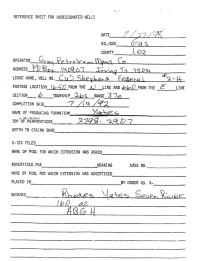 REFERENCE SHEET FOR UNDESIGNATED WELLS
DATE
OIL/GAS Gas
COUNTY Lea
OPERATOR Gray Petroleum Mgmt Co
ADDRESS PO Box 140907 Irving Tx 75014
LEASE NAME, WELL NO. Shepherd Federal #2-H
FOOTAGE LOCATION 1650 FROM THE N LINE AND 660 FROM THE E LINE
SECTION TOWNSHIP 26s RANGE 37e
COMPLETION DATE 7/19/92
NAME OF PRODUCING FORMATION Yates
TOP OF PERFORATIONS 2798-2907
DEPTH TO CASING SHOE
C-123 FILED
NAME OF POOL FOR WHICH EXTENSION WAS ASKED
ADVERTISED FOR HEARING CASE NO.
NAME OF POOL FOR WHICH EXTENSION WAS ADVERTISED
PLACED IN BY ORDER NO. R-
REMARKS Rhodes Yates Seven River
160 ac
ABGH